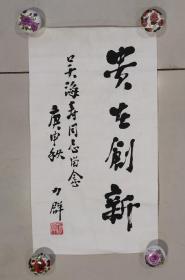 贵在創新
吴海寿同志留念
庚申秋
力群